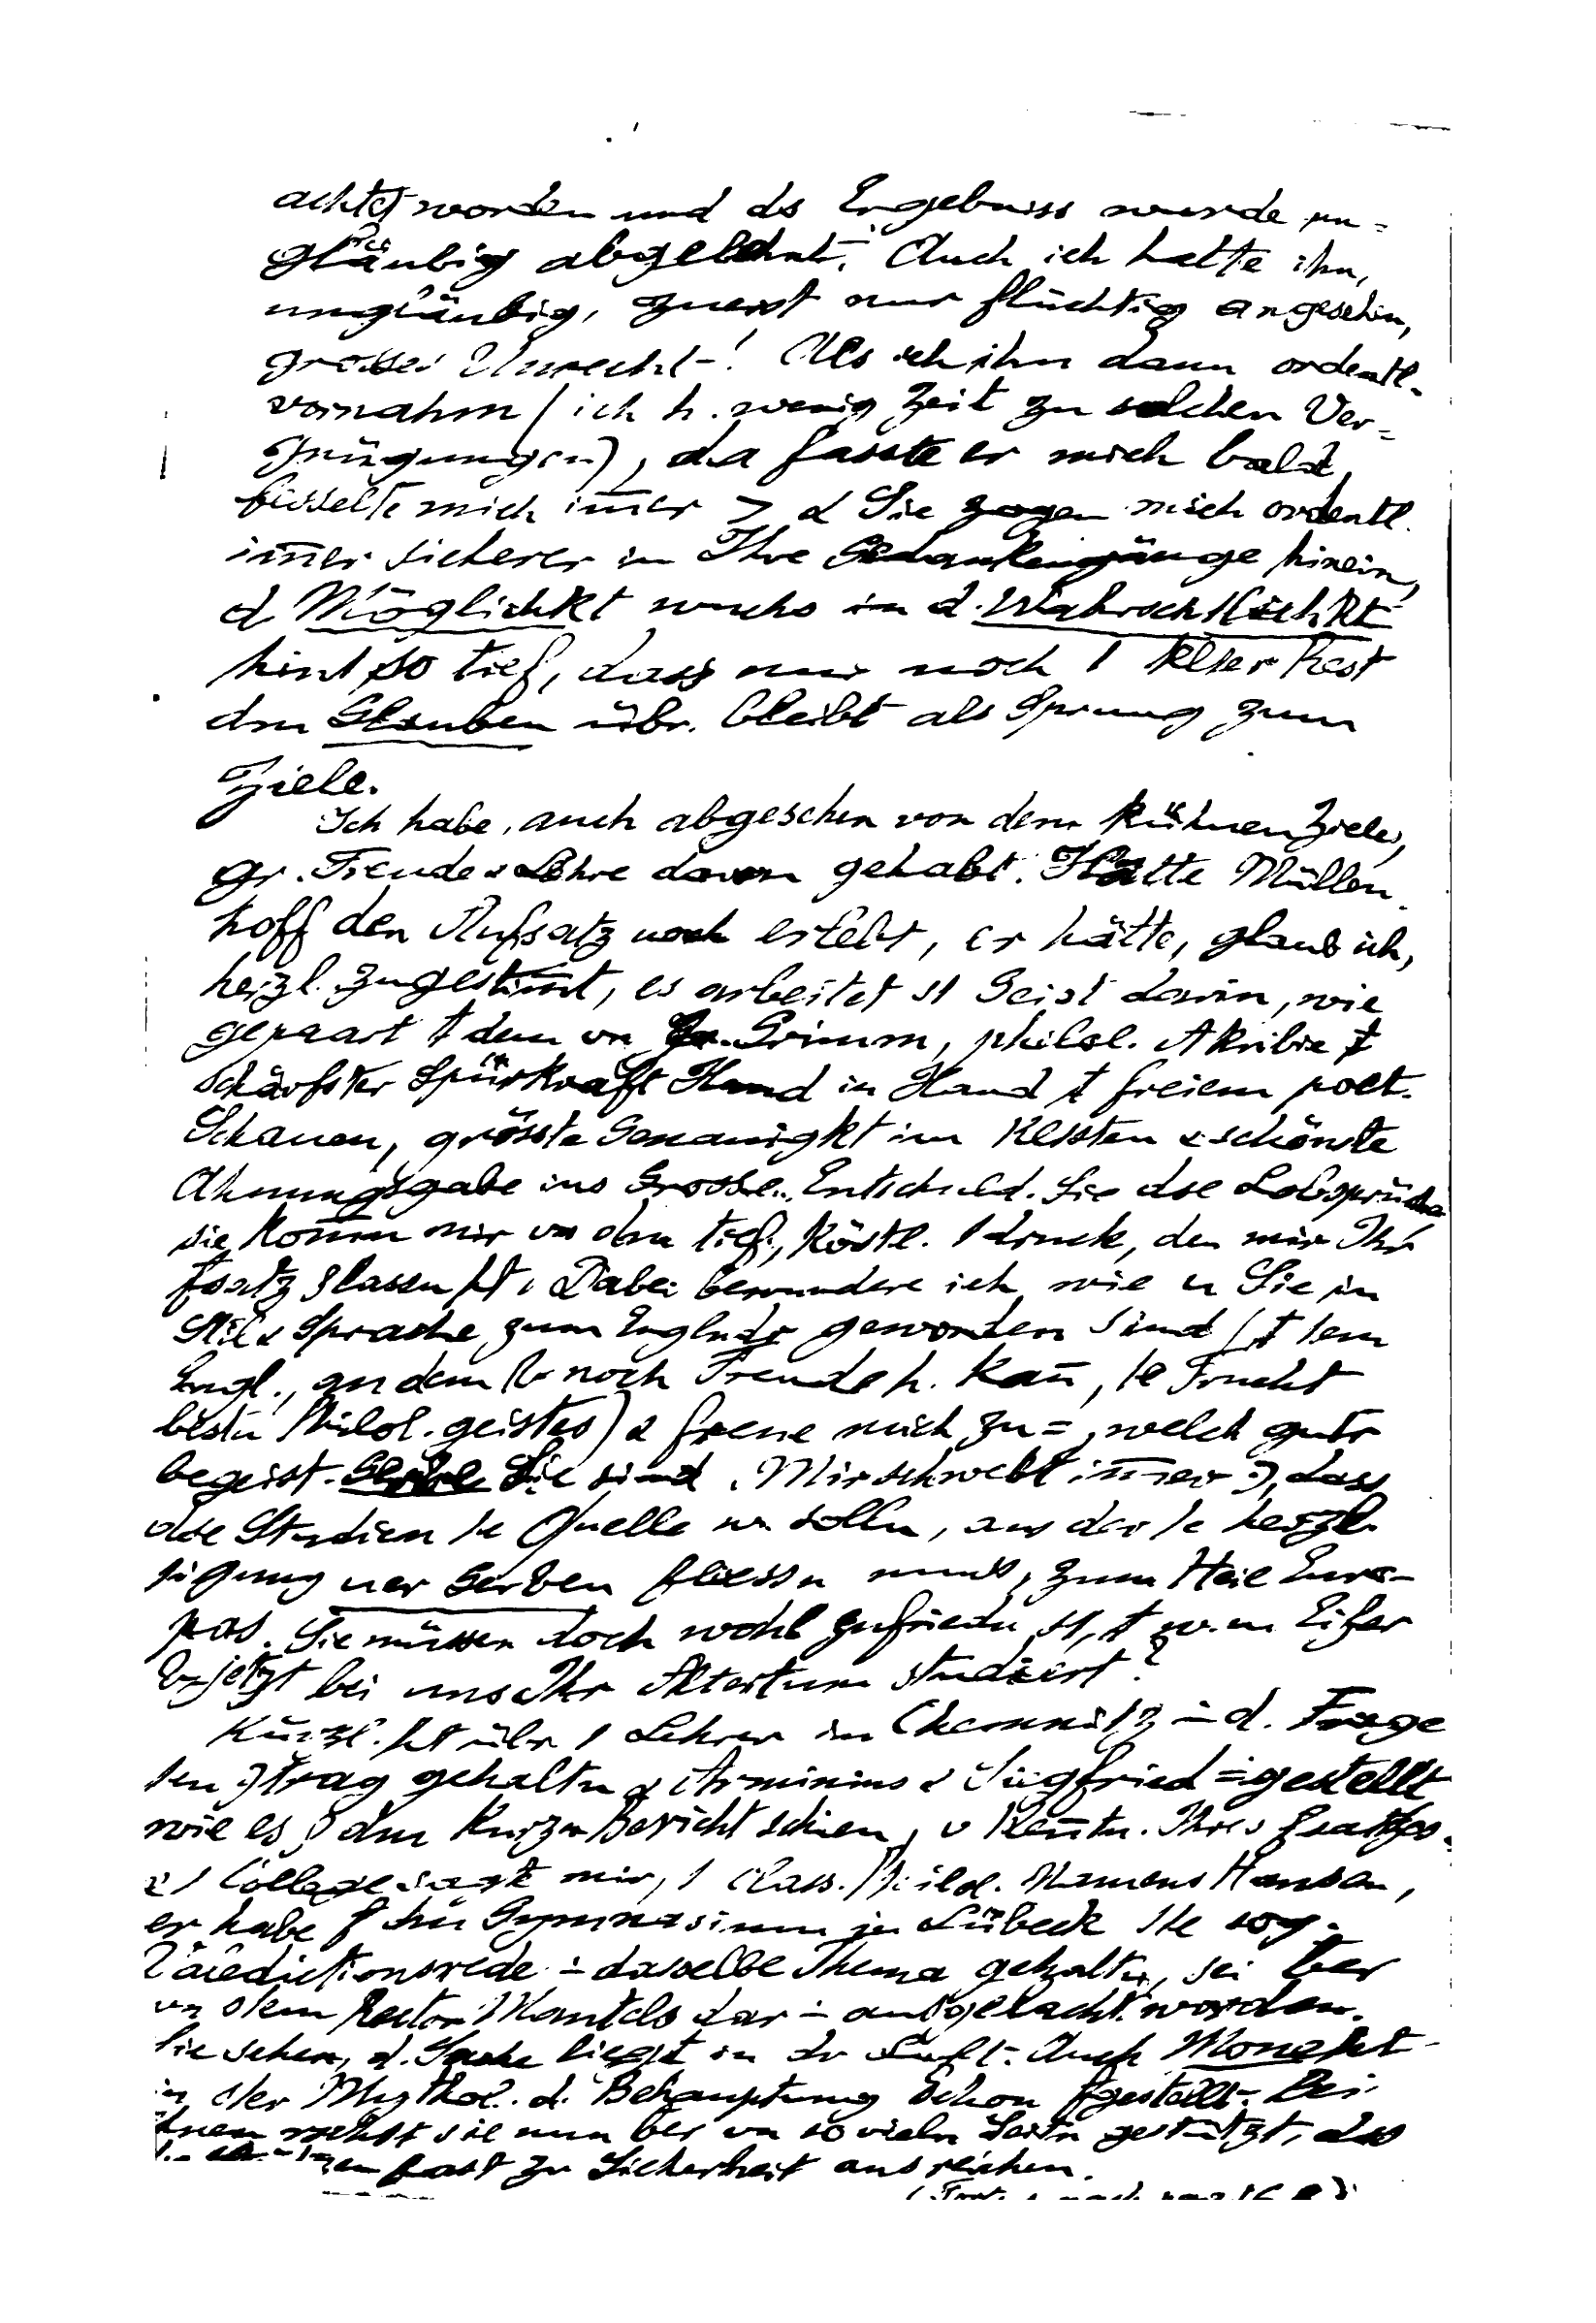 achtet worden und ds Ergebniss wurde un-
gläubig abgelehnt. Auch ich hatte ihn,
ungläubig, zuerst nur flüchtig angesehen,
grosses Unrecht-! Als ich ihn dann ordentl.
vornahm (ich h. wenig Zeit zu solchen Ver-
gnügungen), da fasste er mich bald,
fesselte mich im̅er > & Sie zogen mich ordentl.
im̅er sicherer in Ihre Gedankengänge hinein,
d Möglichkt wuchs in d. Wahrsch1lichkt
hin1 so tief, dass nur noch 1 kl1er Rest
dm Glauben übr. bleibt als Sprung zum
Ziele.
Ich habe, auch abgesehen von dem kühnen Ziele,
gr. Freude & Lehre davon gehabt. Hätte Müllen-
hoff den Aufsatz noch erlebt, er hätte, glaub ich,
herzl. zugestim̅t, es arbeitet s1 Geist darin, wie
gepaart † dem vn Gr. Grimm, philol. Akribie †
schärfster Spürkraft Hand in Hand † freiem poet.
Schauen, grösste Genauigkt im kl1sten & schönste
Ahnungsgabe ins Grosse. Entschuld. Sie dse Lobsprüche
sie kom̅n mir vn dm tief., köstl. 1druck, den mir Ihr
fsatz lassen ht. Dabei bewundere ich, wie u Sie in
Stil & Sprache zum Englndr geworden sind († 1em
Engl., an dem noch Freude h. kan̅, 1e Frucht
bestn philol. geistes) & freue mich zu =, welch gutr
begeist. Sie sind. Mir schwebt im̅er, dass
dse Studien 1e Quelle wn solln, aus der 1e herzl.
1igung uer Serben fliessn muss, zum Heile Euro-
pas. Sie müssen doch wohl zufriedn s1, † w. m Eifer
jetzt bei uns Ihr Altertum studiert?
Kürzl. ht übr 1 Lehrer in Chemnitz ÷ d. Frage
1en trag gehaltn & Arminius & Siegfried = gestellt
wie es dm kurzn Bericht schien, Ken̅tn. Ihres fsatzes.
1 College sagt mir, 1 class. Philol. Namens Hansen,
er habe Gymnasium in Lübeck 1e sog.
Valedictionsrede ÷ dasselbe Thema gehaltn, sei ber
vn dem Rector Mantels dar ÷ ausgelacht worden.
Sie sehen, d. Sache liegt in dr Luft. Auch Mone ht
in sr Mythol. d. Behauptung schon fgestellt. Bei
Ihnen sie nun ber vn so vieln Seitn gestützt, dss
fast zu Sicherheit ausreichen.